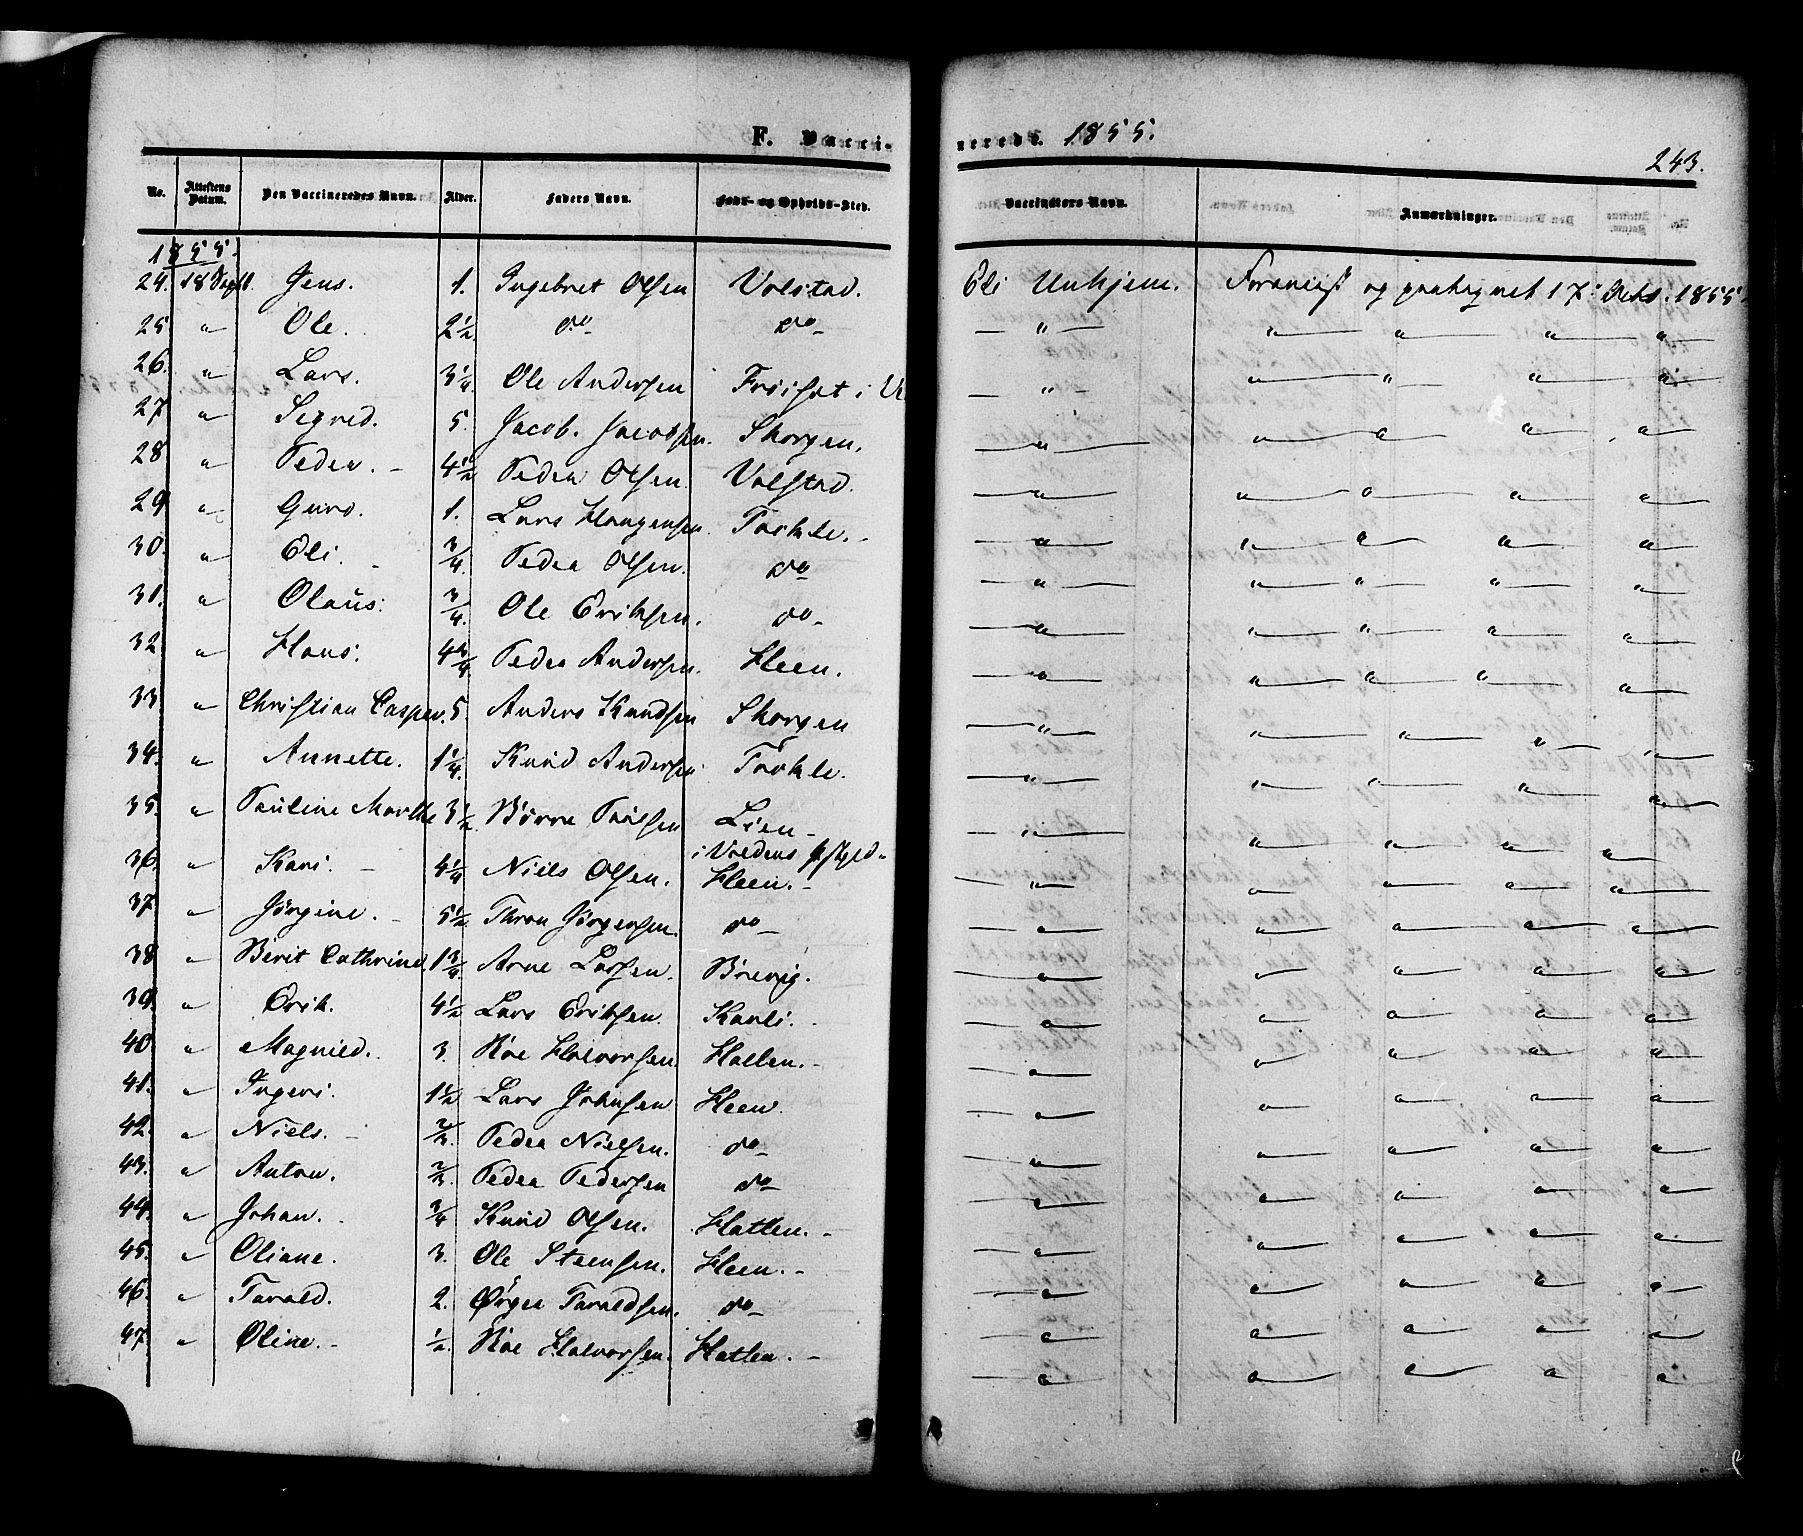 F. Vaccinerede. 1855.
243.
No. Attestens Datum. Den Vaccineredes Navn. Alder. Faders Navn. Føde- og Opholds-Sted. Vaccinators Navn. Anmærkninger.
1855.
24. 18 Septb. Jens. 1. Ingebret Olsen Volstad. Eli Unhjem. Foreviist og paategnet 17 Octo. 1855.
25. " Ole. 2½ do do " " " " "
26. " Lars. 3¼ Ole Andersen Frisset i " " " " "
27. " Segred. 5. Jacob Jacobsen. Skorgen. " " " " "
28 " Peder. 4½ Peder Olsen. Volstad. " " " " "
29 " Guro. 1. Lars Haugensen Torkle. " " " " "
30. " Eli. ¾ Peder Olsen. do " " " " "
31. " Olaus. ¾ Ole Eriksen. do " " " " "
32 " Hans. 4¾ Peder Andersen. Heen. " " " " "
33 " Christian Casper. 5. Anders Knudsen Skorgen " " " " "
34. " Annette. 1¼ Knud Andersen Torkle. " " " " "
35. " Pauline Marthe 3½ Børre Poulsen Lien i Voldens Pstgjd. " " " " "
36. " Kari. 4¼ Niels Olsen. Heen. " " " " "
37. " Jørgine. 5½ Thron Jørgensen. do " " " " "
38 " Berit Cathrine. 1¾ Arne Larsen. Brevig. " " " " "
39. " Erik. 4½ Lars Eriksen. Karli. " " " " "
40 " Magnild. 3. Roe Halvorsen. Hatlen. " " " " "
41. " Ingeri. 1½ Lars Johnsen Heen. " " " " "
42. " Niels. ⅔ Peder Nielsen. do " " " " "
43. " Anton. ⅔ Peder Pedersen do " " " " "
44. " Johan. ¾ Knud Olsen. Hatlen. " " " " "
45. " Oliane. 3. Ole Steensen. Heen. " " " " "
46. " Tarald. 2. Ørger Taraldsen. do " " " " "
47. " Oline. ½ Roe Halvorsen. Hatlen. " " " " "